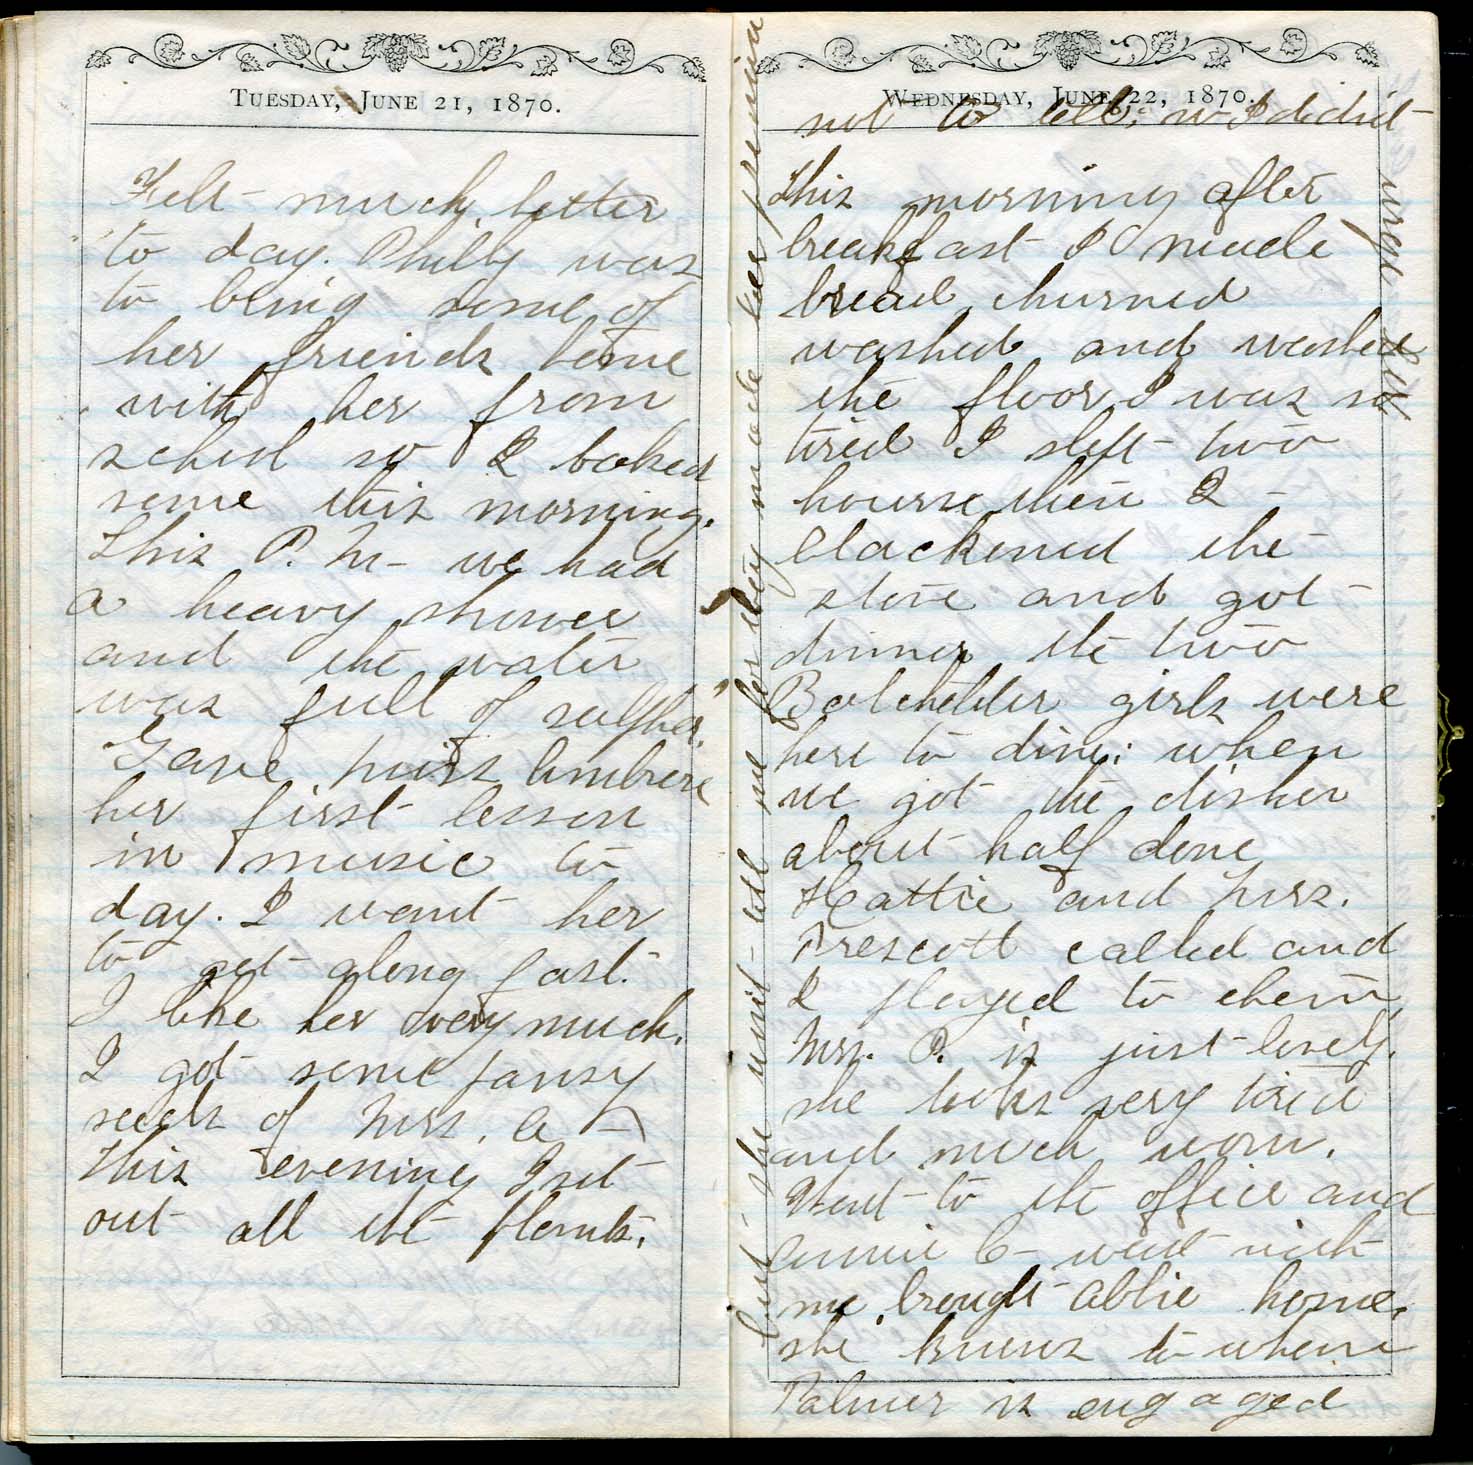 TUESDAY, JUNE 21, 1870.
Felt much better
to day. Philly was
to bring some of
her friends home
with her from
school so I baked
some this morning.
This P. M. we had
a heavy shower
and the water
was full of sulpher.
Gave Miss
her first lesson
in music to
day. I want her
to get along fast.
I like her very much.
I got some pansy
seeds of Mrs. A
this evening I set
out all the plants.
WEDNESDAY, JUNE 22, 1870.
This morning after
breakfast I made
bread, churned
washed and washed
the floor, I was so
tired I slept two
hours then I
blackened the
stove and got
dinner the two
Batchelder girls were
here to dine; when
we got the dishes
about half done
Hattie and Mrs.
Prescott called and
I played to them,
Mrs. P. is just lovely.
she looks very tired
and much worn.
Went to the office and
Annie C- went with
me, brought Abbie home,
she knows to whom
Palmer is engaged
but she wont tell me for they made her promise
not to tell, so I didnt
urge her